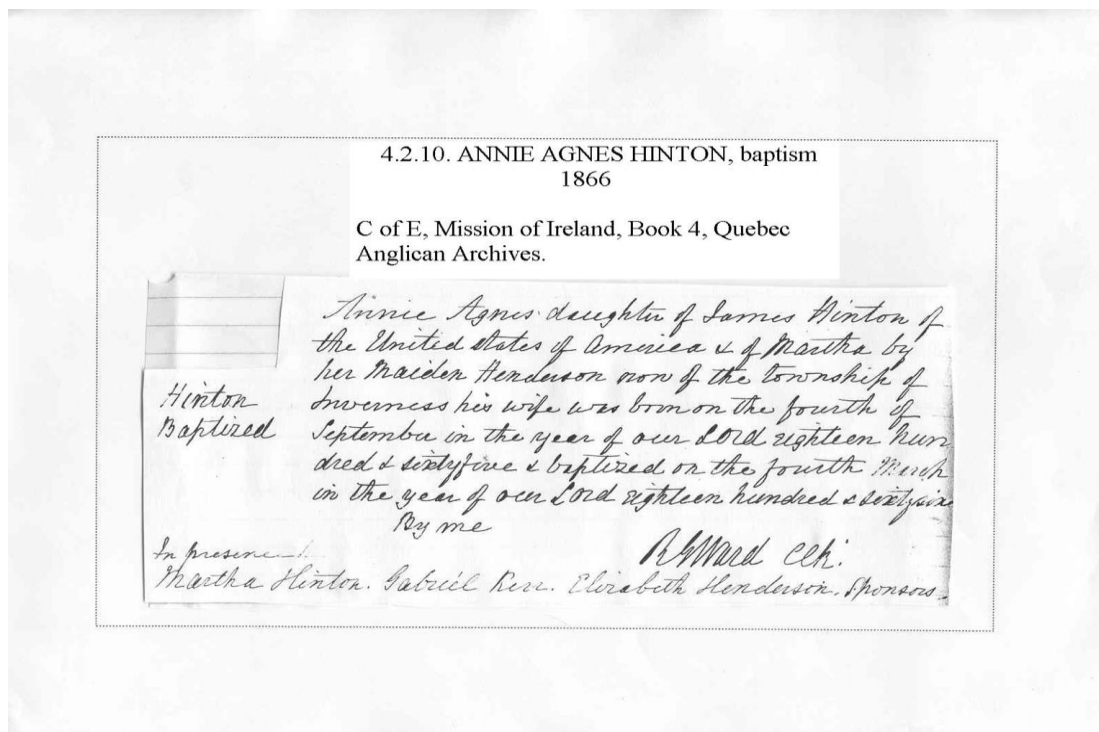 4.2.10. ANNIE AGNES HINTON, baptism
1866
C of E, Mission of Ireland, Book 4, Quebec
Anglican Archives.
Annie Agnes daughter of James Hinton of
the United States of America & of Martha by
her Maiden Henderson now of the township of
Inverness his wife was born on the fourth of
September in the year of our Lord eighteen hun
dred & sixtyfive & baptized on the fourth March
in the year of our Lord eighteen hundred & sixtysix
By me
Hinton
Baptized
R G Ward Clk.
In presence
Martha Hinton. Gabriel Kerr. Elizabeth Henderson. Sponsors